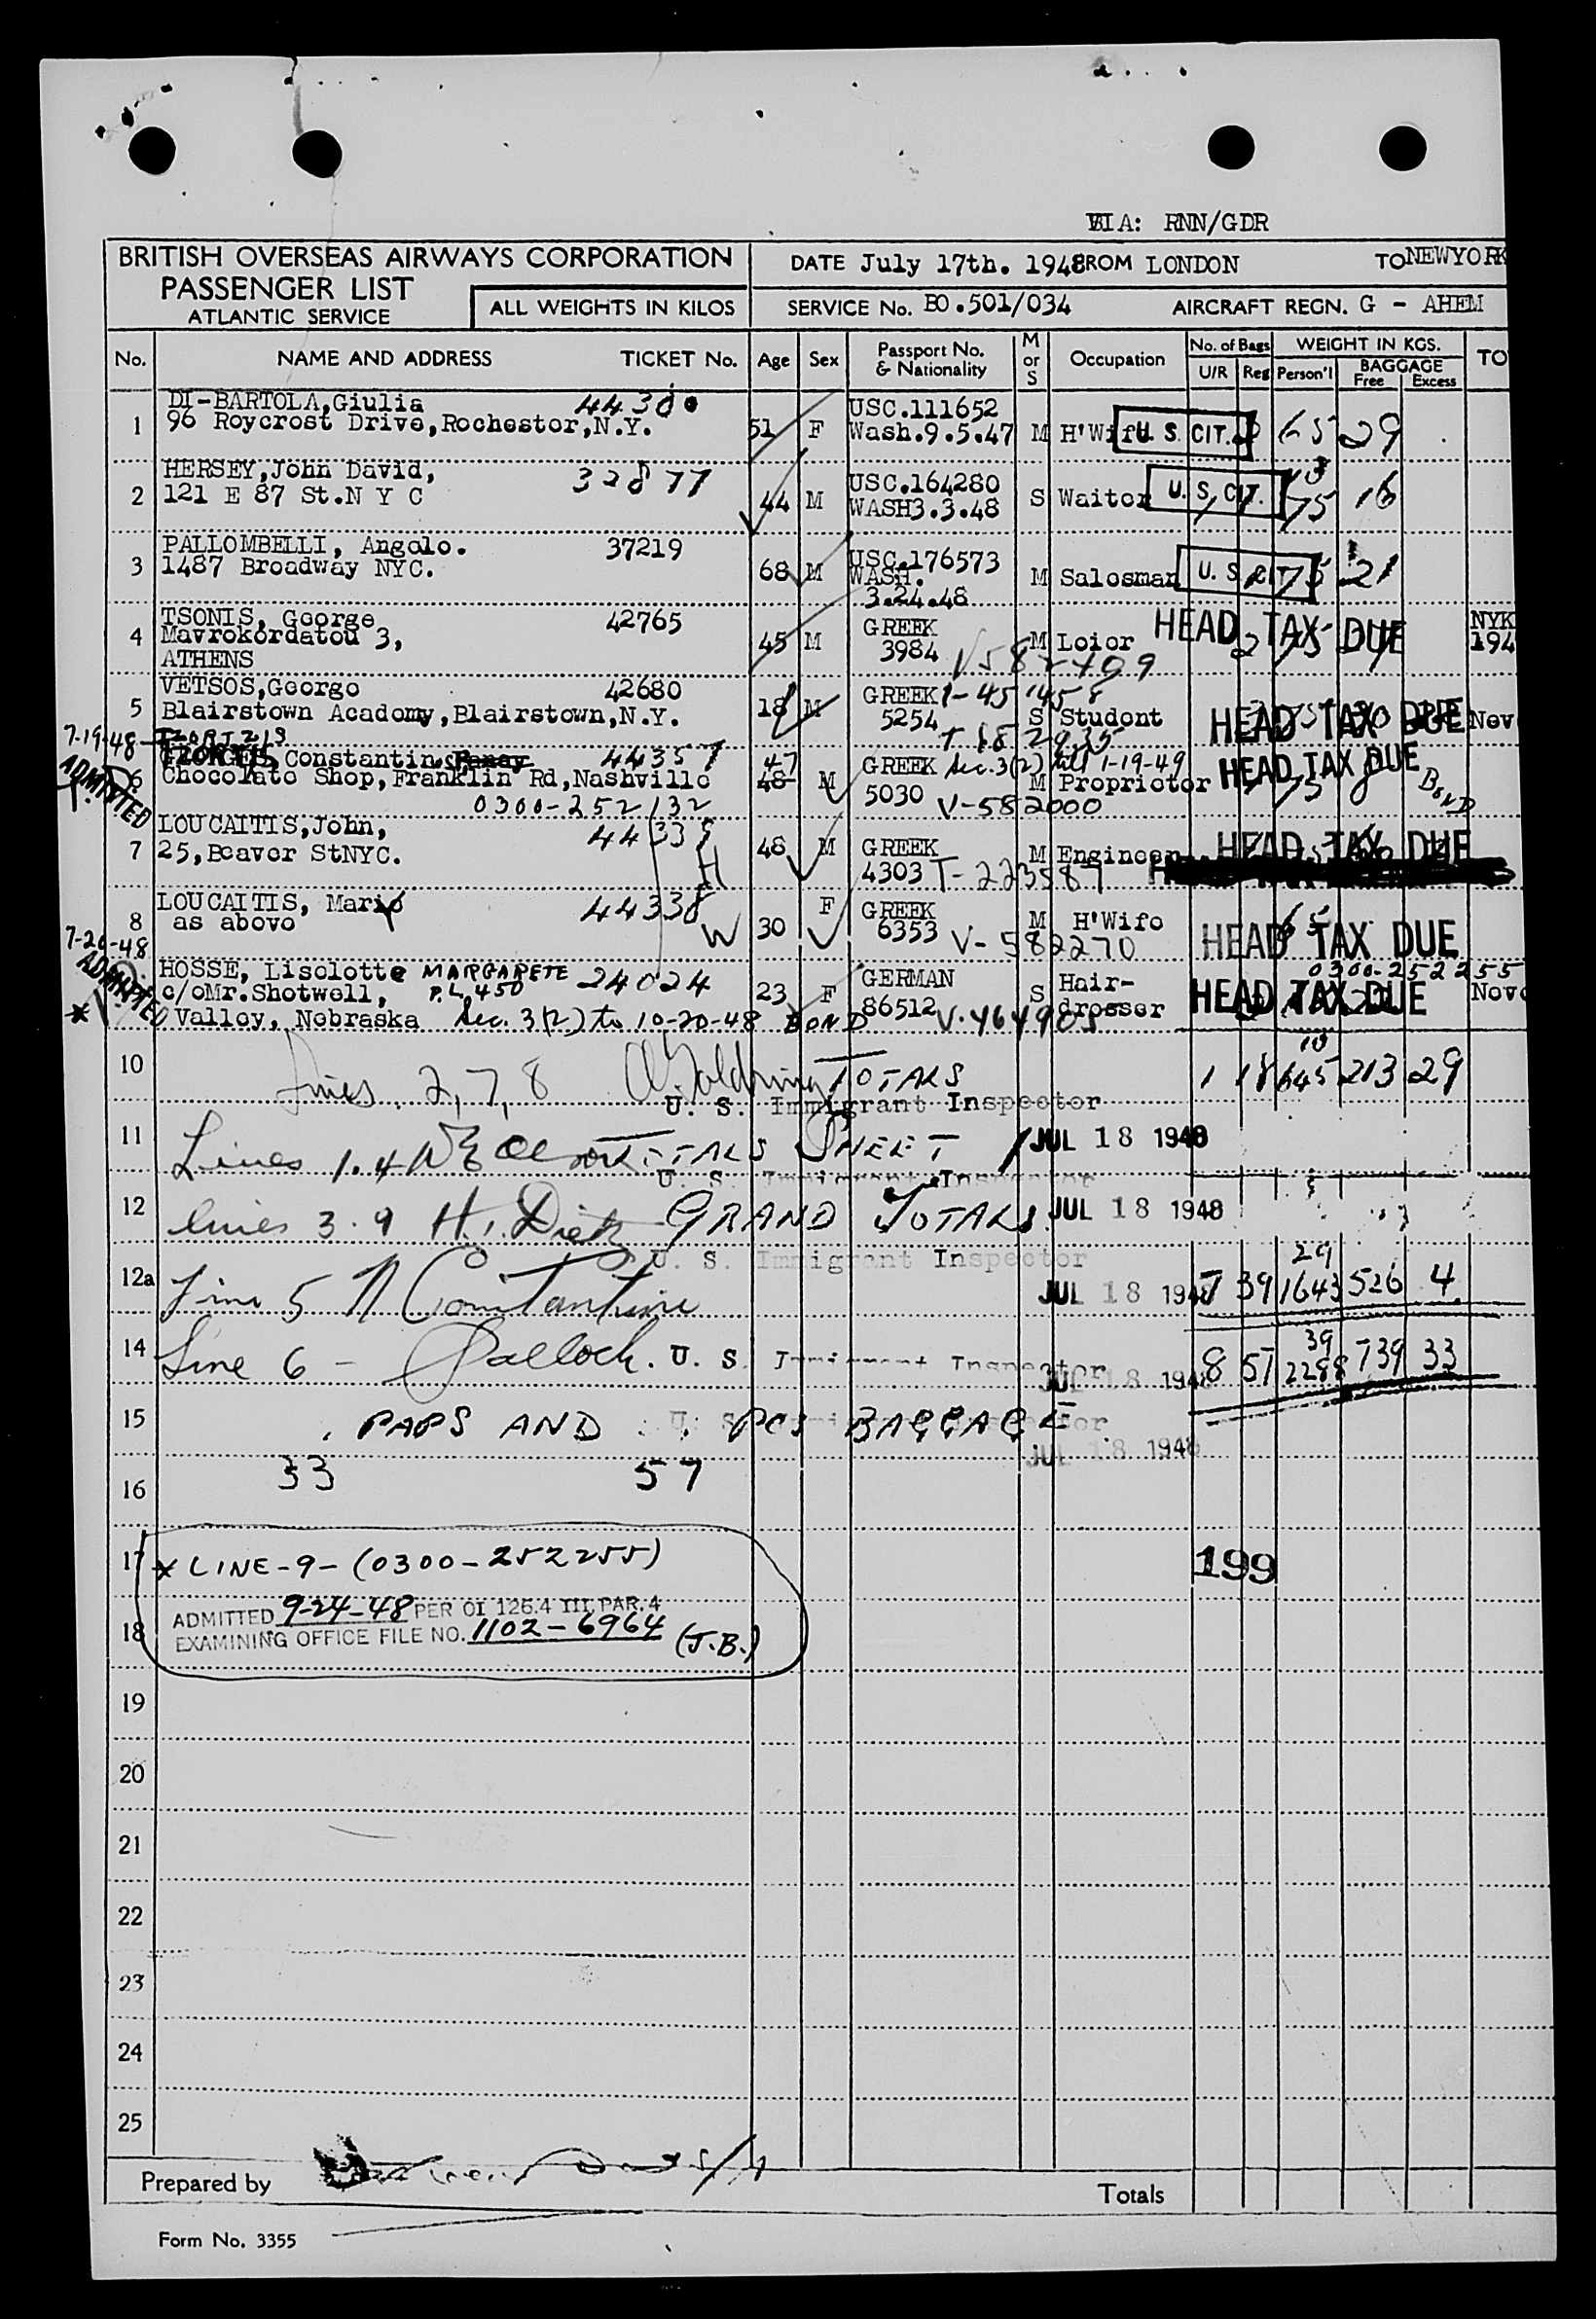 VIA: RNN/GDR
BRITISH OVERSEAS AIRWAYS CORPORATION
PASSENGER LIST
ATLANTIC SERVICE
ALL WEIGHTS IN KILOS
DATE July 17th. 1948 ROM LONDON TO NEWYORK
SERVICE No. BO.501/034 AIRCRAFT REGN. G - AHEM
No. NAME AND ADDRESS TICKET No. Age Sex Passport No. & Nationality M or S Occupation No. of Bags U/R Reg WEIGHT IN KGS. Person'l BAGGAGE Free Excess TO
1 DI-BARTOLA,Giulia 44300 51 F USC.111652 M H'Wife U. S. CIT. 65 29
96 Roycrost Drive,Rochester,N.Y. Wash.9.5.47
2 HERSEY,John David, 32877 44 M USC.164280 S Waiter U. S. CIT. 75 16
121 E 87 St.N Y C WASH3.3.48
3 PALLOMBELLI, Angelo. 37219 68 M USC.176573 M Salesman U. S. CIT. 75 21
1487 Broadway NYC. WASH.
3.24.48
4 TSONIS, George 42765 45 M GREEK M Leior HEAD TAX DUE NYK
Mavrokordatou 3, 3984 2 75 194
ATHENS
5 VETSOS,George 42680 18 M GREEK S Student HEAD TAX DUE Nov
Blairstown Academy,Blairstown,N.Y. 5254
7-19-48
ADMITTED
6 Constantin 44357 47 48 M GREEK Sec. 3(2) till 1-19-49 M Proprietor HEAD TAX DUE
Chocolate Shop,Franklin Rd,Nashville 5030 V-582000 75 8 BOND
0300-252132
7 LOUCAITIS,John, 44339 H 48 M GREEK M Engineer HEAD TAX DUE
25,Beaver StNYC. 4303 T-223587
8 LOUCAITIS, Mary 44338 W 30 F GREEK M H'Wife 65 HEAD TAX DUE
as above 6353 V-582270
7-20-48
ADMITTED
HOSSE, Liselotte MARGARETE 24024 23 F GERMAN S Hair- 0300-252255
c/oMr.Shotwell, P.L. 450 86512 V.464905 dresser HEAD TAX DUE Nov
Valley, Nebraska Sec. 3(2) to 10-20-48 BOND
10 Lines 2, 7, 8 TOTALS 1 18 645 213 29
U. S. Immigrant Inspector
11 Lines 1.4 TOTALS SHEET 1 JUL 18 1948
U. S. Immigrant Inspector
12 Lines 3.9 GRAND TOTALS JUL 18 1948
U. S. Immigrant Inspector
12a Line 5 N Constantine JUL 18 1948 7 39 29 1643 526 4
14 Line 6 - U. S. Immigrant Inspector JUL 18 1948 8 57 39 2288 739 33
15 PAPS AND PCS BAGGAGE
U. S. Immigrant Inspector
JUL 18 1948
16 33 57
17 * LINE-9-(0300-252255) 199
ADMITTED 9-24-48 PER OI 126.4 III PAR. 4
18 EXAMINING OFFICE FILE NO. 1102-6964 (J.B.)
19
20
21
22
23
24
25
Prepared by Totals
Form No. 3355